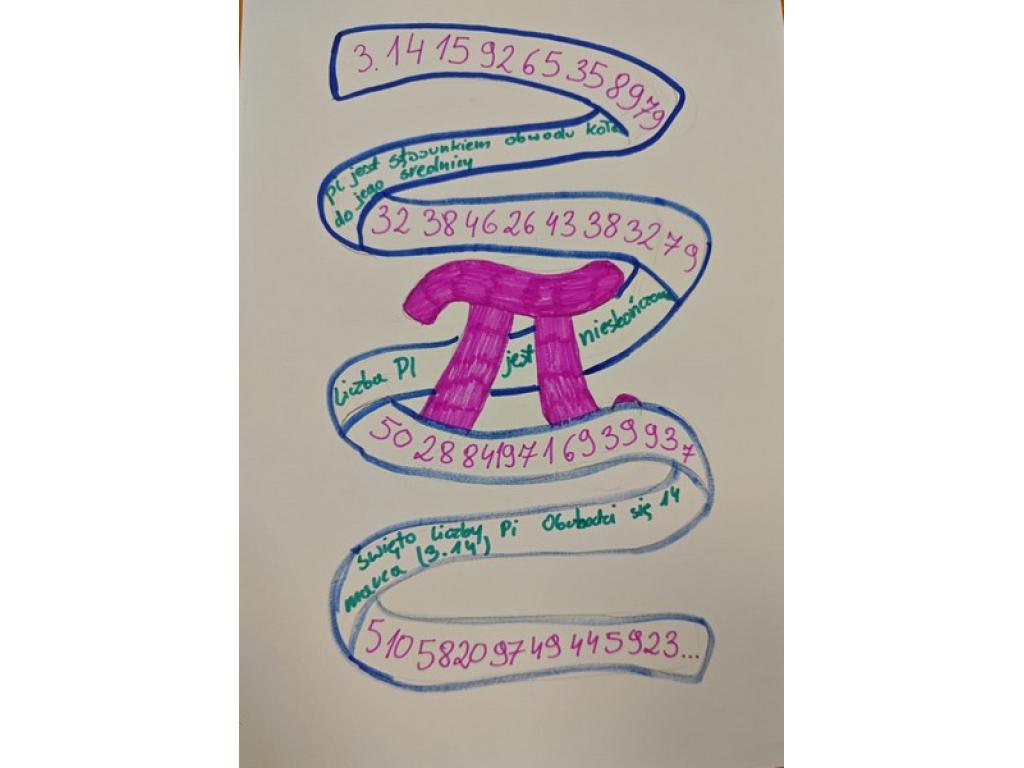 3.14 15 92 65 35 89 79
Pi jest stosunkiem obwodu koła
do jego średnicy
32 38 46 26 43 38 32 79
Liczba PI jest nieskończona
50 28 84197 1 69 39 93 7
święto liczby Pi Obchodzi się 14
marca (3.14)
5 10 58 20 97 49 44 59 23...